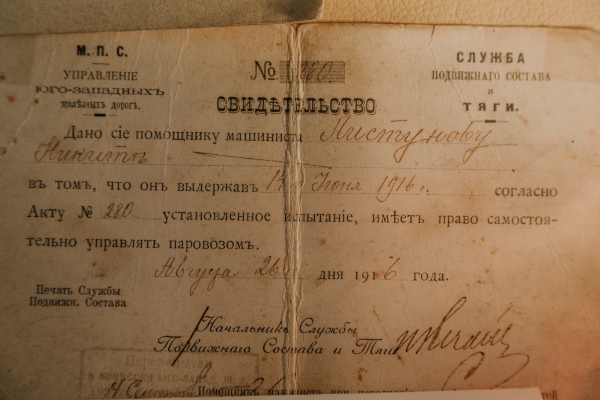 М. П. С.
УПРАВЛЕНІЕ
Юго-Западныхъ
желѣзныхъ дорогъ.
№ 280
СЛУЖБА
ПОДВИЖНАГО СОСТАВА
И
ТЯГИ.
СВИДѢТЕЛЬСТВО
Дано сіе помощнику машиниста Листунову
Никитѣ
въ томъ, что онъ выдержав 14 Іюня 1916 г. согласно
Акту № 280 установленное испытаніе, имѣетъ право самостоя-
тельно управлять паровозомъ.
Августа 26 дня 1916 года.
Печать Службы
Подвижн. Состава
Начальникъ Службы
Подвижнаго Состава и Тяги
Помощник